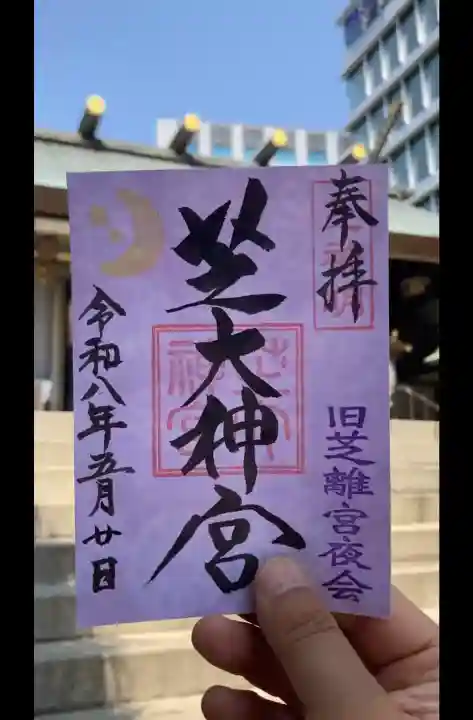 奉拝
旧芝離宮夜会
芝大神宮
令和八年五月廿日